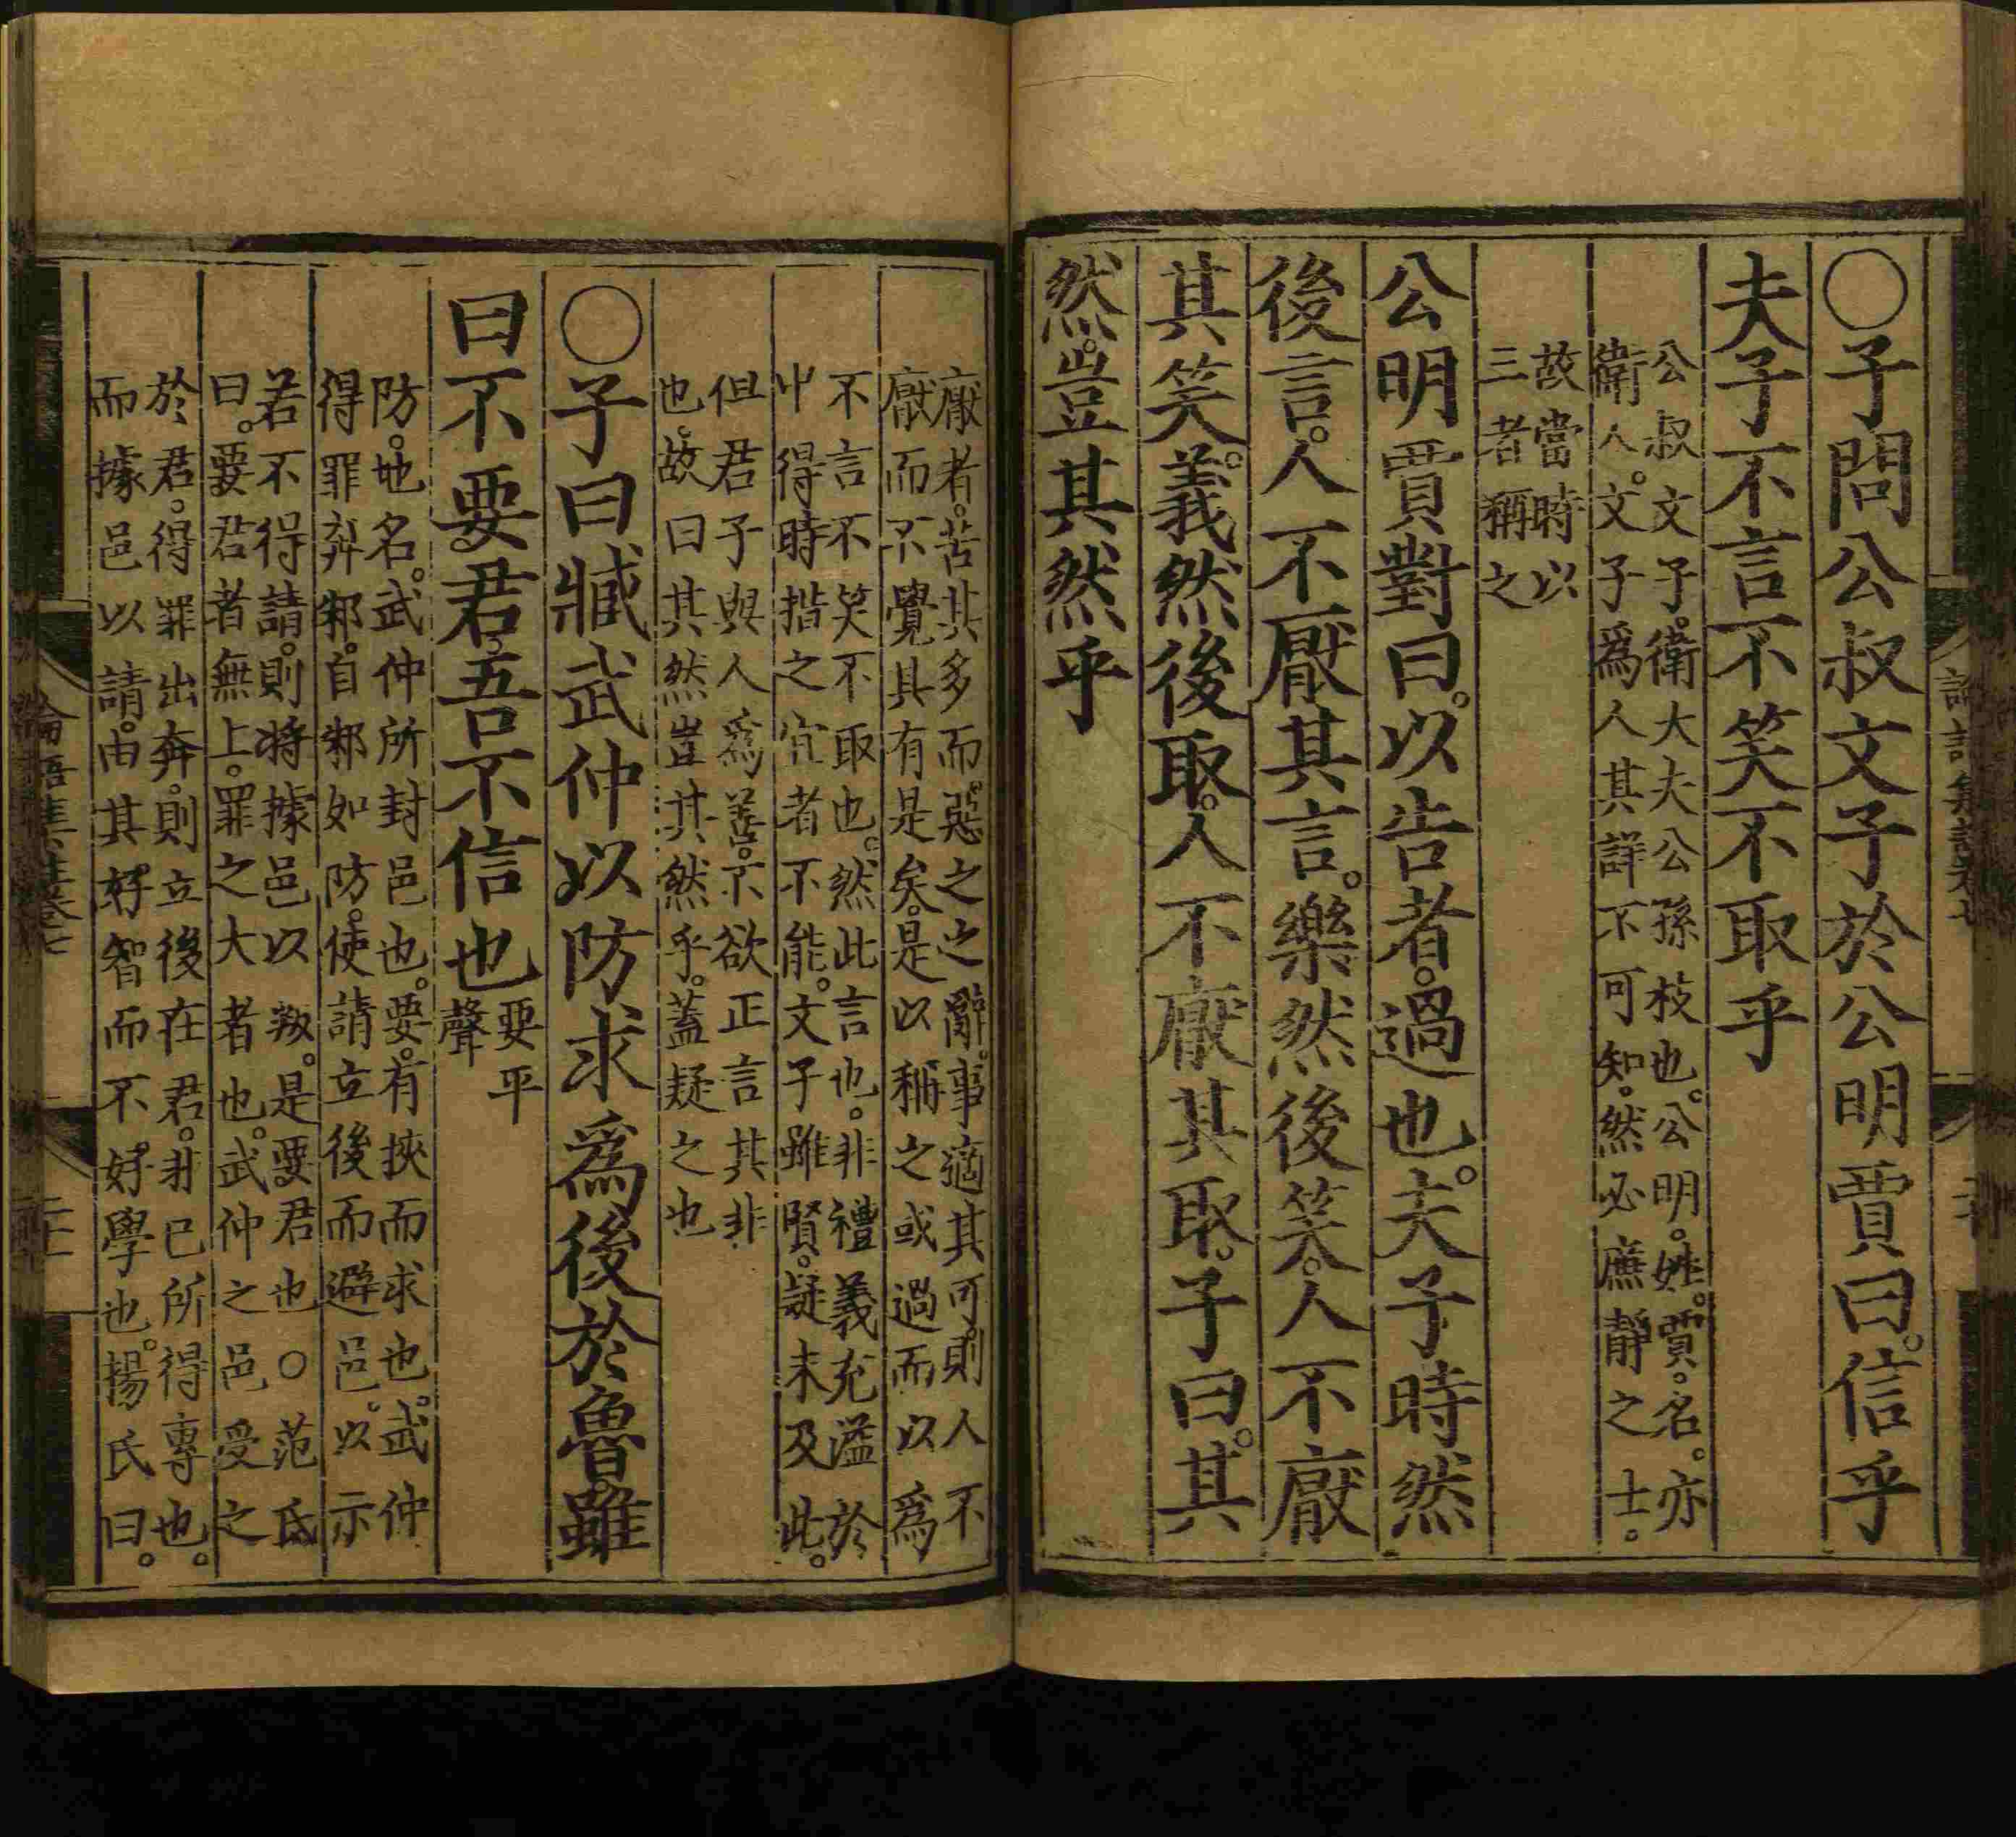 〇子問公叔文子於公明賈曰。信乎
夫子不言不笑不取乎
公叔文子。衛大夫公孫枝也。公明。姓。賈。名。亦
衛人。文子爲人其詳不可知。然必廉靜之士。
故當時以
三者稱之
公明賈對曰。以告者。過也。夫子時然
後言。人不厭其言。樂然後笑。人不厭
其笑。義然後取。人不厭其取。子曰。其
然。豈其然乎
厭者。苦其多而。惡之之辭。事適其可。則人不
厭而不覺其有是矣。是以稱之或過而以爲
不言不笑不取也。然此言也。非禮義充溢於
中得時措之宜者不能。文子雖賢。疑未及此。
但君子與人爲善。不欲正言其非
也。故曰其然豈其然乎。蓋疑之也
〇子曰臧武仲以防求爲後於魯。雖
曰不要君。吾不信也
要平
聲
防。地名。武仲所封邑也。要。有挾而求也。武仲
得罪奔邾。自邾如防。使請立後而避邑。以示
若不得請。則將據邑以叛。是要君也〇范氏
曰。要君者無上。罪之大者也。武仲之邑受之
於君。得罪出奔。則立後在君。非己所得專也。
而據邑以請。由其好智而不好學也。楊氏曰。